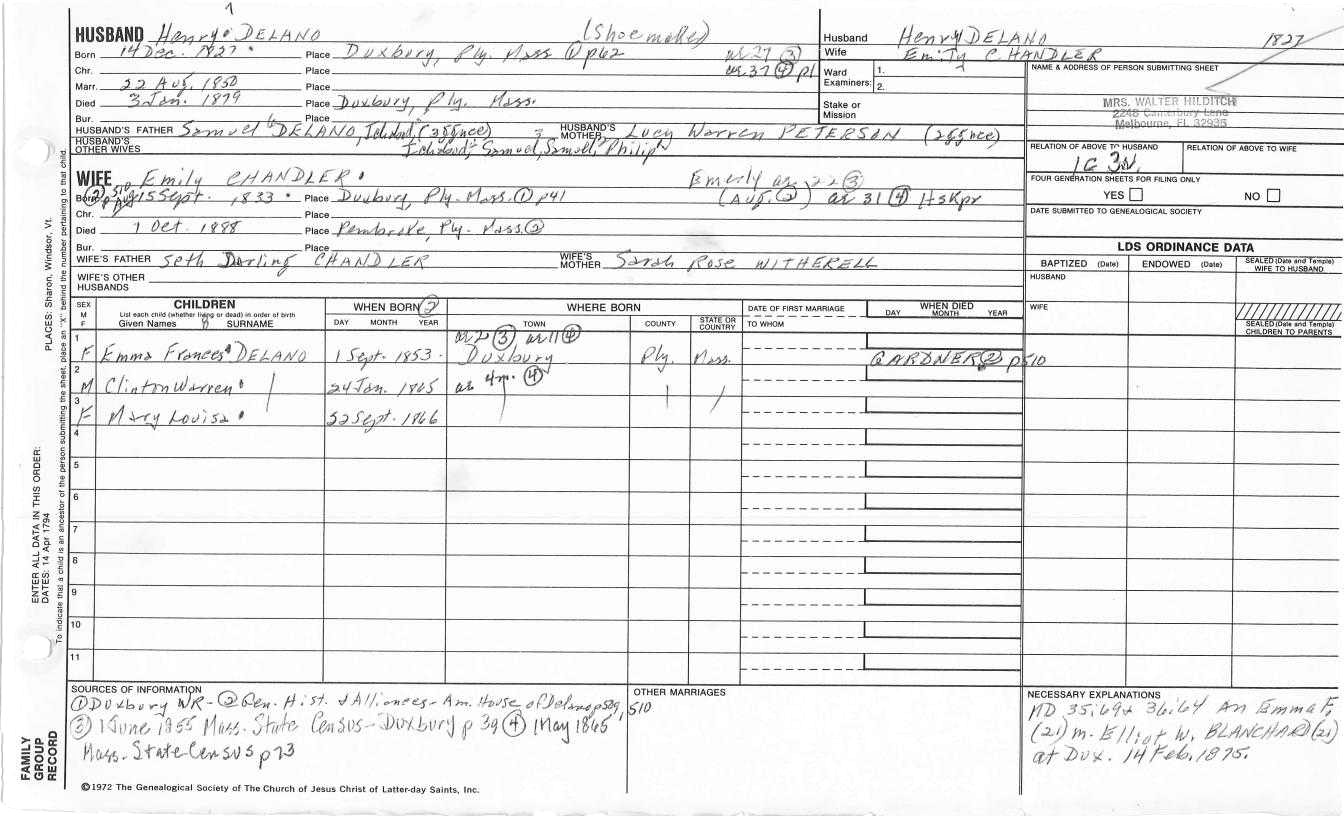 HUSBAND Henry DELANO (Shoemaker)
Born 14 Dec. 1827 Place Duxbury, Ply. Mass ① p62 as 27 ③
Chr. Place as 37 ④ p1
Marr. 22 Aug. 1850 Place
Died 3 Jan. 1899 Place Duxbury, Ply. Mass.
Bur. Place
HUSBAND'S FATHER Samuel DELANO, HUSBAND'S MOTHER Lucy Warren PETERSON
HUSBAND'S OTHER WIVES Ichabod, Samuel, Samuel, Philip
Husband Henry DELANO 1827
Wife Emily C. HANDLER
Ward Examiners: 1.
2.
Stake or Mission
NAME & ADDRESS OF PERSON SUBMITTING SHEET
MRS. WALTER HILDITCH
2248 Canterbury Lane
Melbourne, FL 32935
RELATION OF ABOVE TO HUSBAND RELATION OF ABOVE TO WIFE
1C 3R
FOUR GENERATION SHEETS FOR FILING ONLY
YES NO
DATE SUBMITTED TO GENEALOGICAL SOCIETY
WIFE Emily CHANDLER Emerly as 22 ③
Born 15 Sept. 1833 Place Duxbury, Ply. Mass. ① p41 (Aug. ②) as 31 ④ Hskpr
Chr. Place
Died 1 Oct. 1898 Place Pembroke, Ply. Mass. ②
Bur. Place
WIFE'S FATHER Seth Darling CHANDLER WIFE'S MOTHER Sarah Rose WITHERELL
WIFE'S OTHER HUSBANDS
LDS ORDINANCE DATA
BAPTIZED (Date) ENDOWED (Date) SEALED (Date and Temple) WIFE TO HUSBAND
HUSBAND
WIFE
SEALED (Date and Temple) CHILDREN TO PARENTS
SEX M F CHILDREN List each child (whether living or dead) in order of birth Given Names SURNAME WHEN BORN ② DAY MONTH YEAR WHERE BORN TOWN COUNTY STATE OR COUNTRY DATE OF FIRST MARRIAGE TO WHOM WHEN DIED DAY MONTH YEAR
1 as 2 ③ as 11 ④
F Emma Frances DELANO 1 Sept. 1853 Duxbury Ply. Mass. GARDNER ② p510
2 as 4m. ④
M Clinton Warren 24 Jan. 1865
3
F Mary Louisa 22 Sept. 1866
4
5
6
7
8
9
10
11
SOURCES OF INFORMATION
① Duxbury VR - ② Gen. Hist. & Alliances - Am. House of Delano p509, 510
③ 1 June 1855 Mass. State Census - Duxbury p 39 ④ 1 May 1865
Mass. State Census p 23
OTHER MARRIAGES
NECESSARY EXPLANATIONS
MD 35:69 & 36:64 An Emma F.
(21) m. Elliot W. BLANCHARD (21)
at Dux. 14 Feb. 1875.
©1972 The Genealogical Society of The Church of Jesus Christ of Latter-day Saints, Inc.
FAMILY GROUP RECORD
ENTER ALL DATA IN THIS ORDER:
DATES: 14 Apr 1794 PLACES: Sharon, Windsor, Vt.
To indicate that a child is an ancestor of the person submitting the sheet, place an "X" behind the number pertaining to that child.